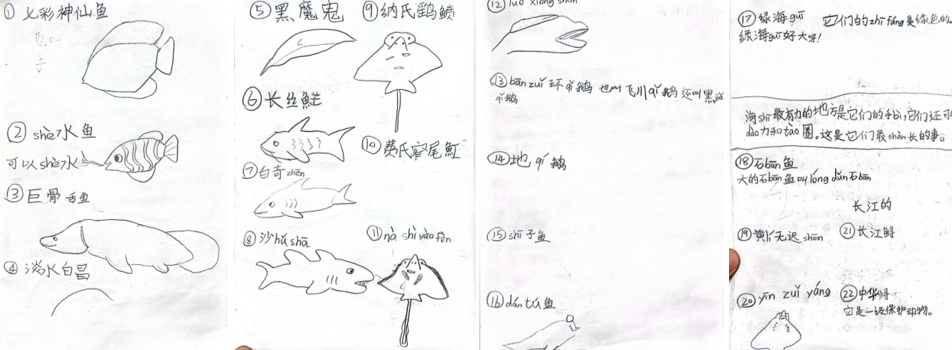 ① 七彩神仙鱼
② shè水鱼
可以shè水
③ 巨骨舌鱼
④ 淡水白昌
⑤ 黑魔鬼
⑥ 长丝
⑦ 白奇
⑧ 沙hǔ shā
⑨ 纳氏鹞鲼
⑩ 费氏窄尾魟
⑪ nà shì yào fèn
⑫ luó xióng shān
⑬ bān zuǐ 环 qǐ鹅 也叫飞川qǐ鹅 还叫黑
qǐ鹅
⑭ 地 qǐ 鹅
⑮ shī子鱼
⑯ dán tú鱼
⑰ 绿海guī 它们的zhī fáng是绿色的。
绿海guī好大呀!
海shī最有力的地方是它们的
圈。这是它们最shàn长的事。
⑱ 石bān鱼
大的石bān鱼 lóng dǎn石bān
长江的
⑲
⑳ yīn zuǐ yáng
㉑ 长江鲟
㉒ 中华鲟
它是一级保护动物。